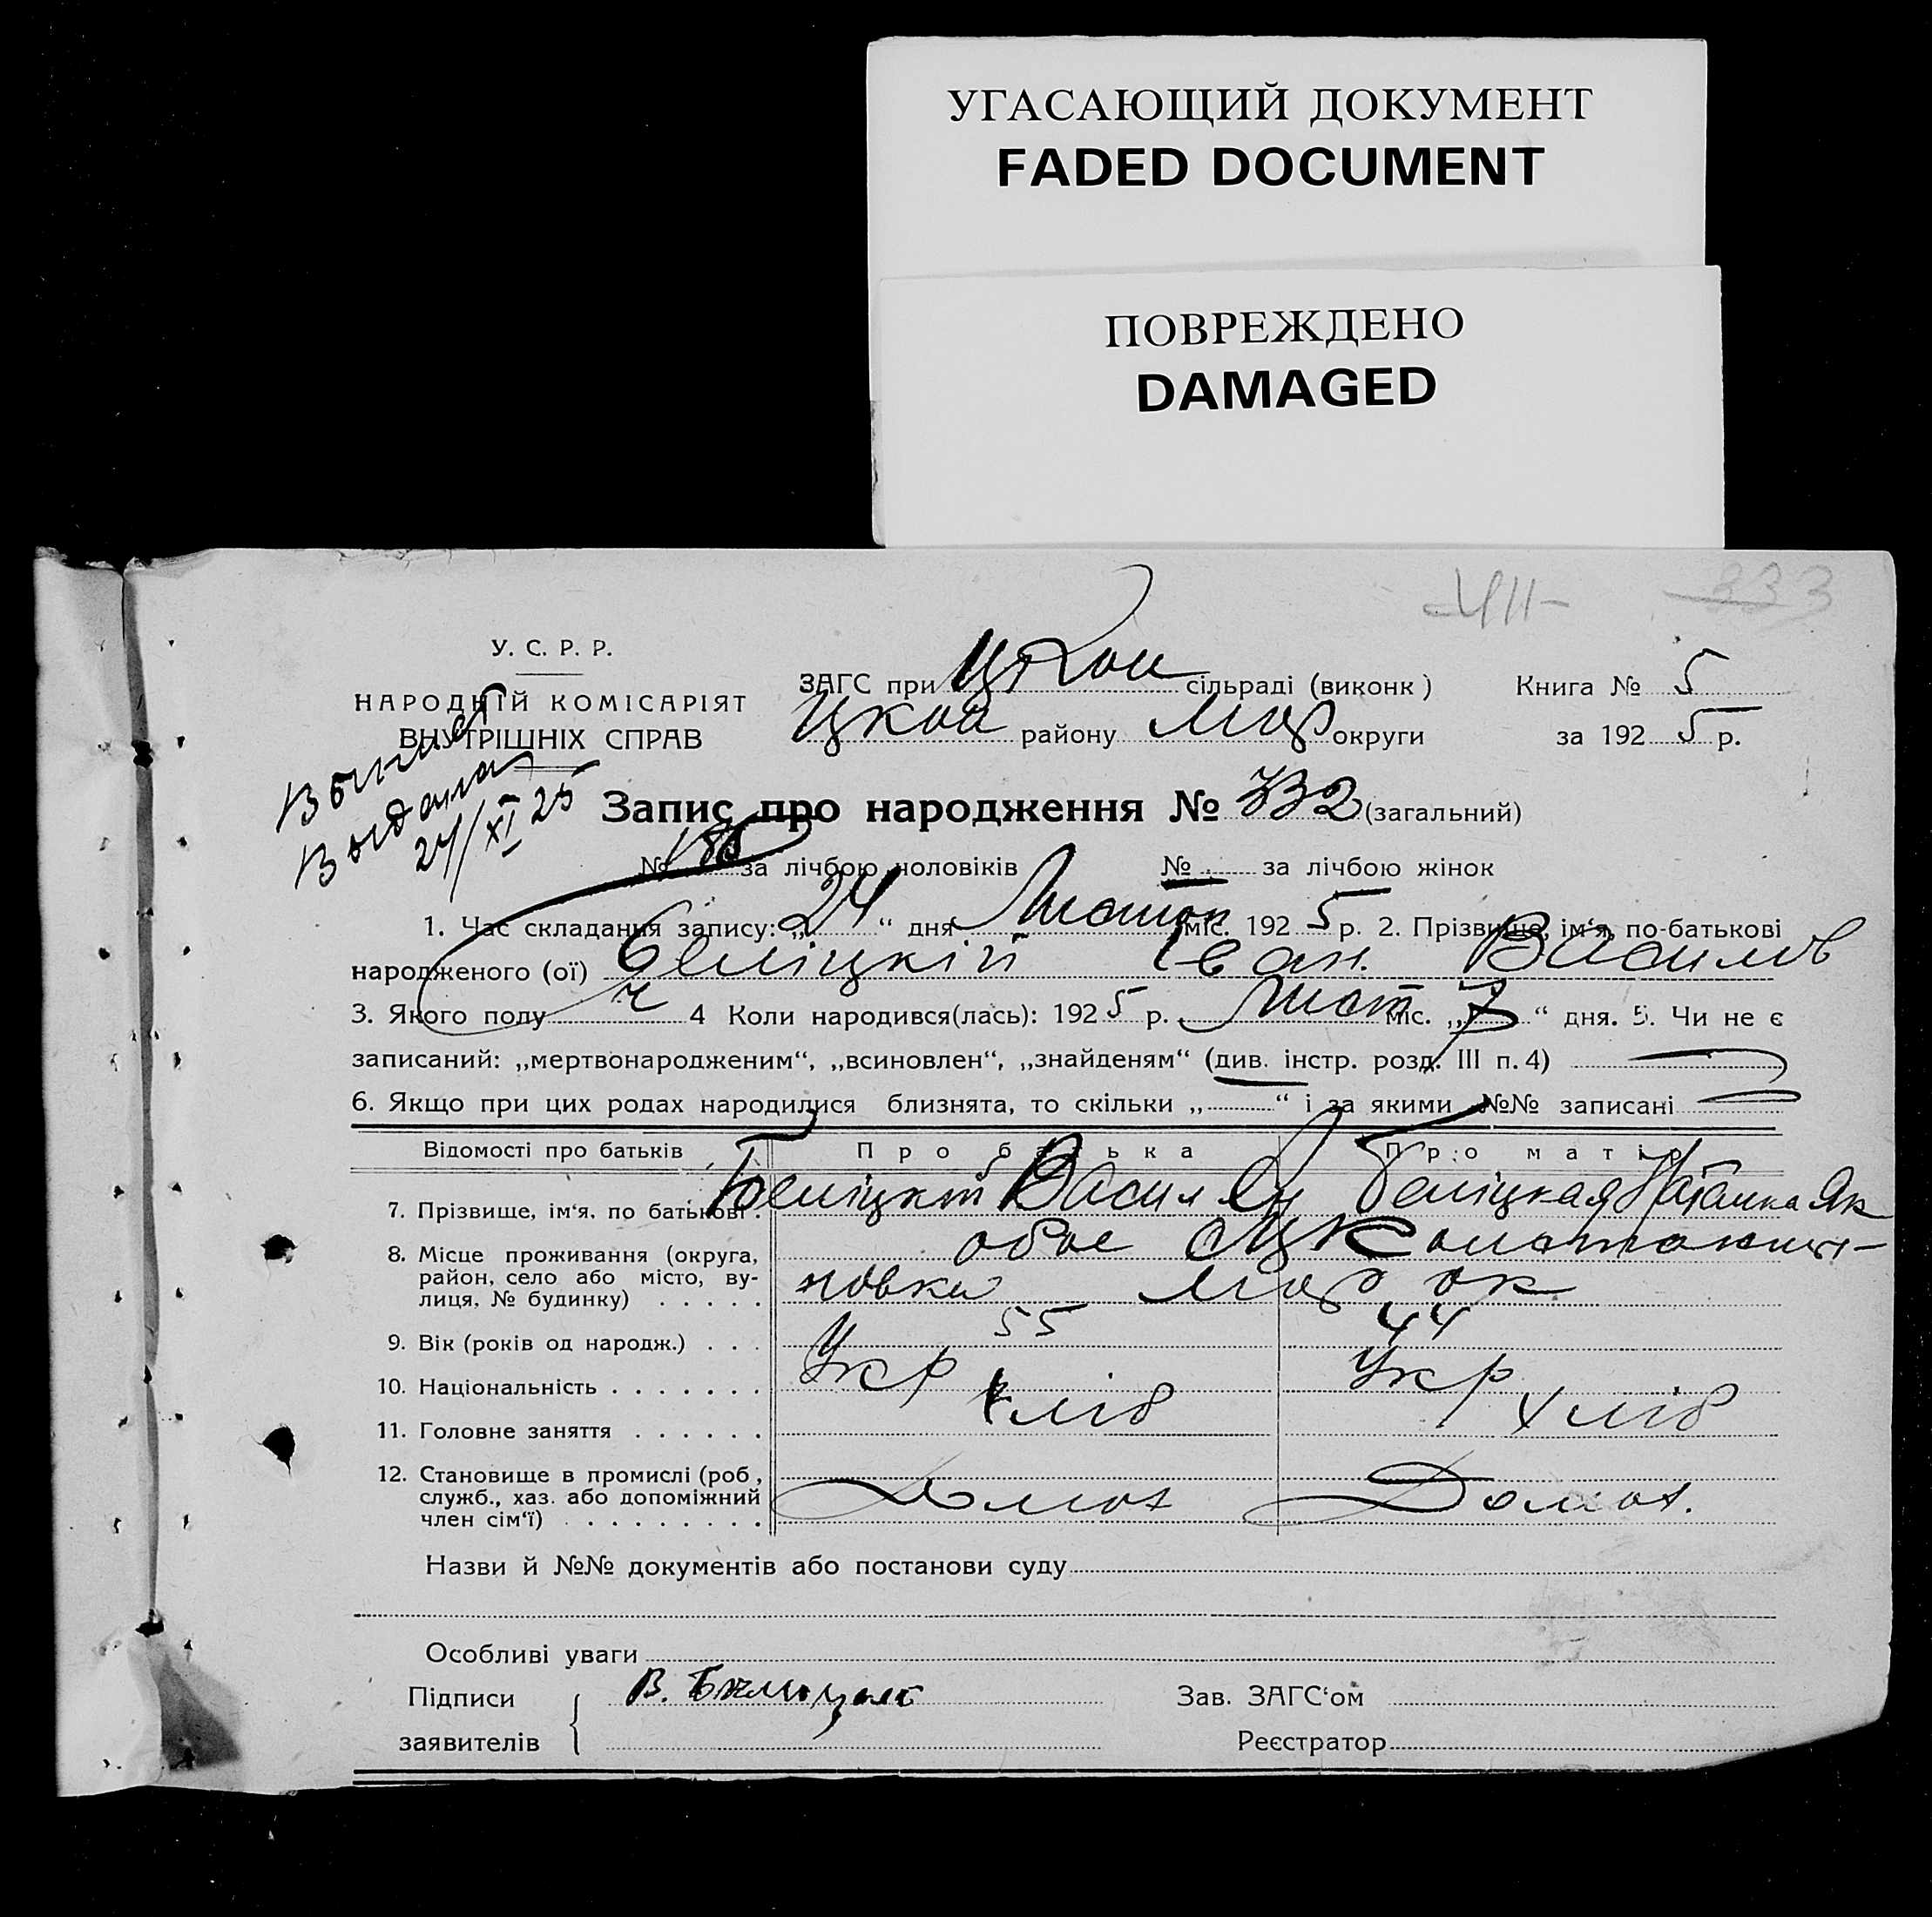 УГАСАЮЩИЙ ДОКУМЕНТ
FADED DOCUMENT
ПОВРЕЖДЕНО
DAMAGED
333
У. С. Р. Р.
НАРОДНІЙ КОМІСАРІЯТ
ВНУТРІШНІХ СПРАВ
ЗАГС при сільраді (виконк) Книга № 5
району Мар округи за 1925 р.
Выдана
24/XI 25
Запис про народження № 332 (загальний)
№ 186 за лічбою чоловіків № за лічбою жінок
1. Час складання запису: „24“ дня міс. 1925 р. 2. Прізвище, ім‘я, по-батькові
народженого (ої) Беліцкій Іван. Васильов
3. Якого полу ч 4 Коли народився(лась): 1925 р. Лист міс. „7“ дня. 5. Чи не є
записаний: „мертвонародженим“, „всиновлен“, „знайденям“ (див. інстр. розд. III п. 4)
6. Якщо при цих родах народилися близнята, то скільки „ “ і за якими №№ записані
Відомості про батьків Про батька Про матір
7. Прізвище, ім‘я, по батькові. Беліцкій Васил Беліцкая Наталка Як
8. Місце проживання (округа, обое Константи-
район, село або місто, ву- новка Мар ок
лиця, № будинку) . . . . .
9. Вік (років од народж.) . . . 55 44
10. Національність . . . . . . . Укр Укр
11. Головне заняття . . . . . . хліб хліб
12. Становище в промислі (роб,
служб., хаз. або допоміжний Домох Домох.
член сім‘ї) . . . . . . . . .
Назви й №№ документів або постанови суду
Особливі уваги
Підписи В. Зав. ЗАГС‘ом
заявителів Реєстратор